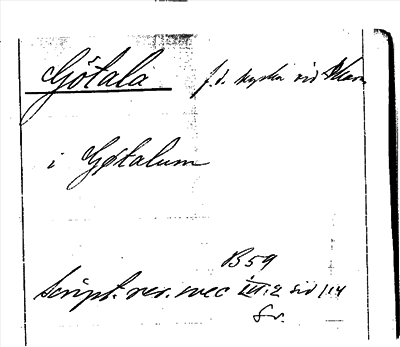 Götala f.d. kyrka vid Skara
i Götalum
B 59
Script. rer. svec III:2 sid 114
Sv.